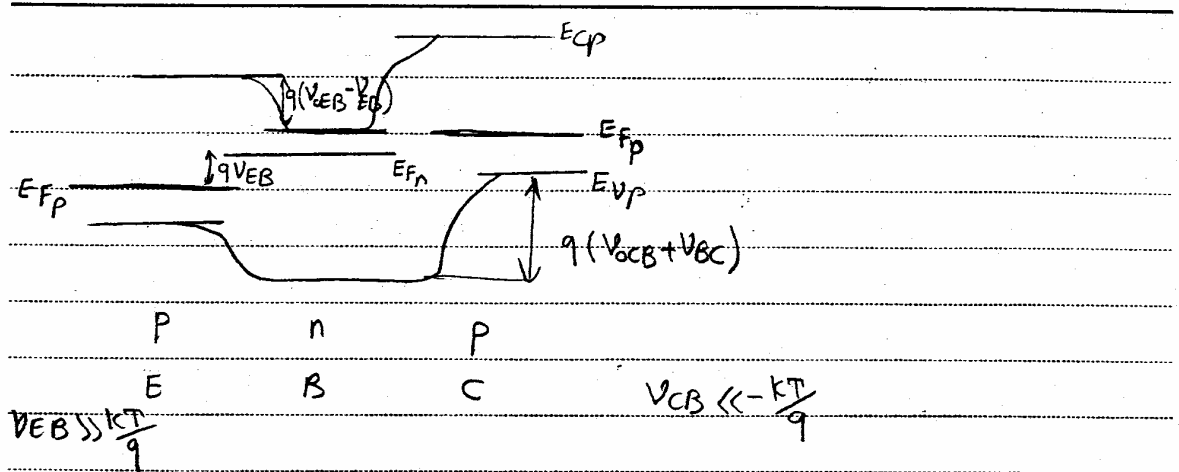 E_Cp
q(V_oEB - V_EB)
E_Fp
qV_EB
E_Fn
E_Vp
E_Fp
q(V_oCB + V_BC)
P n P
E B C
V_CB << -kT/q
V_EB >> kT/q